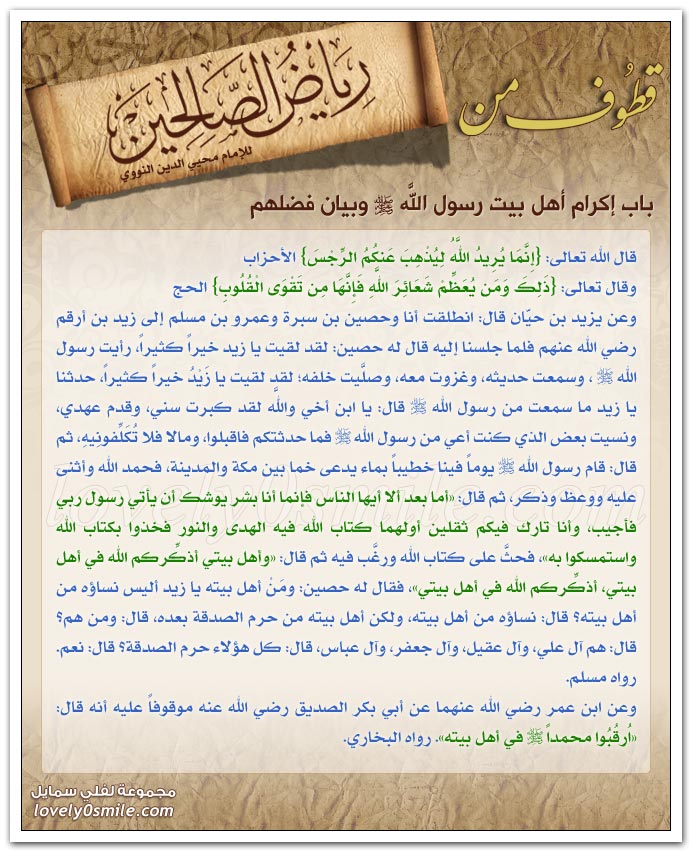 قطوف من
رياض الصالحين
للإمام محيي الدين النووي
باب إكرام أهل بيت رسول اللَّه ﷺ وبيان فضلهم
قال الله تعالى: {إِنَّمَا يُرِيدُ اللَّهُ لِيُذْهِبَ عَنكُمُ الرِّجْسَ} الأحزاب
وقال تعالى: {ذَلِكَ وَمَن يُعَظِّمْ شَعَائِرَ اللهِ فَإِنَّهَا مِن تَقْوَى الْقُلُوبِ} الحج
وعن يزيد بن حيّان قال: انطلقت أنا وحصين بن سبرة وعمرو بن مسلم إلى زيد بن أرقم
رضي الله عنهم فلما جلسنا إليه قال له حصين: لقد لقيت يا زيد خيراً كثيراً، رأيت رسول
الله ﷺ ، وسمعت حديثه، وغزوت معه، وصلَّيت خلفه؛ لقد لقيت يا زَيْدُ خيراً كثيراً، حدثنا
يا زيد ما سمعت من رسول الله ﷺ قال: يا ابن أخي والله لقد كبرت سني، وقدم عهدي،
ونسيت بعض الذي كنت أعي من رسول الله ﷺ فما حدثتكم فاقبلوا، ومالا فلا تُكَلِّفونِيهِ، ثم
قال: قام رسول الله ﷺ يوماً فينا خطيباً بماء يدعى خما بين مكة والمدينة، فحمد الله وأثنى
عليه ووعظ وذكر، ثم قال: «أما بعد ألا أيها الناس فإنما أنا بشر يوشك أن يأتي رسول ربي
فأجيب، وأنا تارك فيكم ثقلين أولهما كتاب الله فيه الهدى والنور فخذوا بكتاب الله
واستمسكوا به»، فحثَّ على كتاب الله ورغَّب فيه ثم قال: «وأهل بيتي أذكِّركم الله في أهل
بيتي، أذكِّركم الله في أهل بيتي»، فقال له حصين: ومَنْ أهل بيته يا زيد أليس نساؤه من
أهل بيته؟ قال: نساؤه من أهل بيته، ولكن أهل بيته من حرم الصدقة بعده، قال: ومن هم؟
قال: هم آل علي، وآل عقيل، وآل جعفر، وآل عباس، قال: كل هؤلاء حرم الصدقة؟ قال: نعم.
رواه مسلم.
وعن ابن عمر رضي الله عنهما عن أبي بكر الصديق رضي الله عنه موقوفاً عليه أنه قال:
«اُرقُبُوا محمداً ﷺ في أهل بيته». رواه البخاري.
مجموعة لفلي سمايل
lovely0smile.com
lovely0smile.com